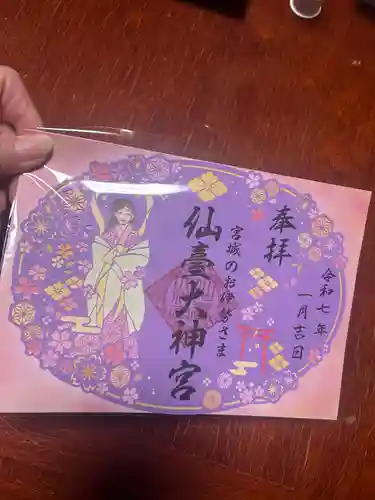 奉拝
令和七年
一月吉日
宮城のお伊勢さま
仙臺大神宮